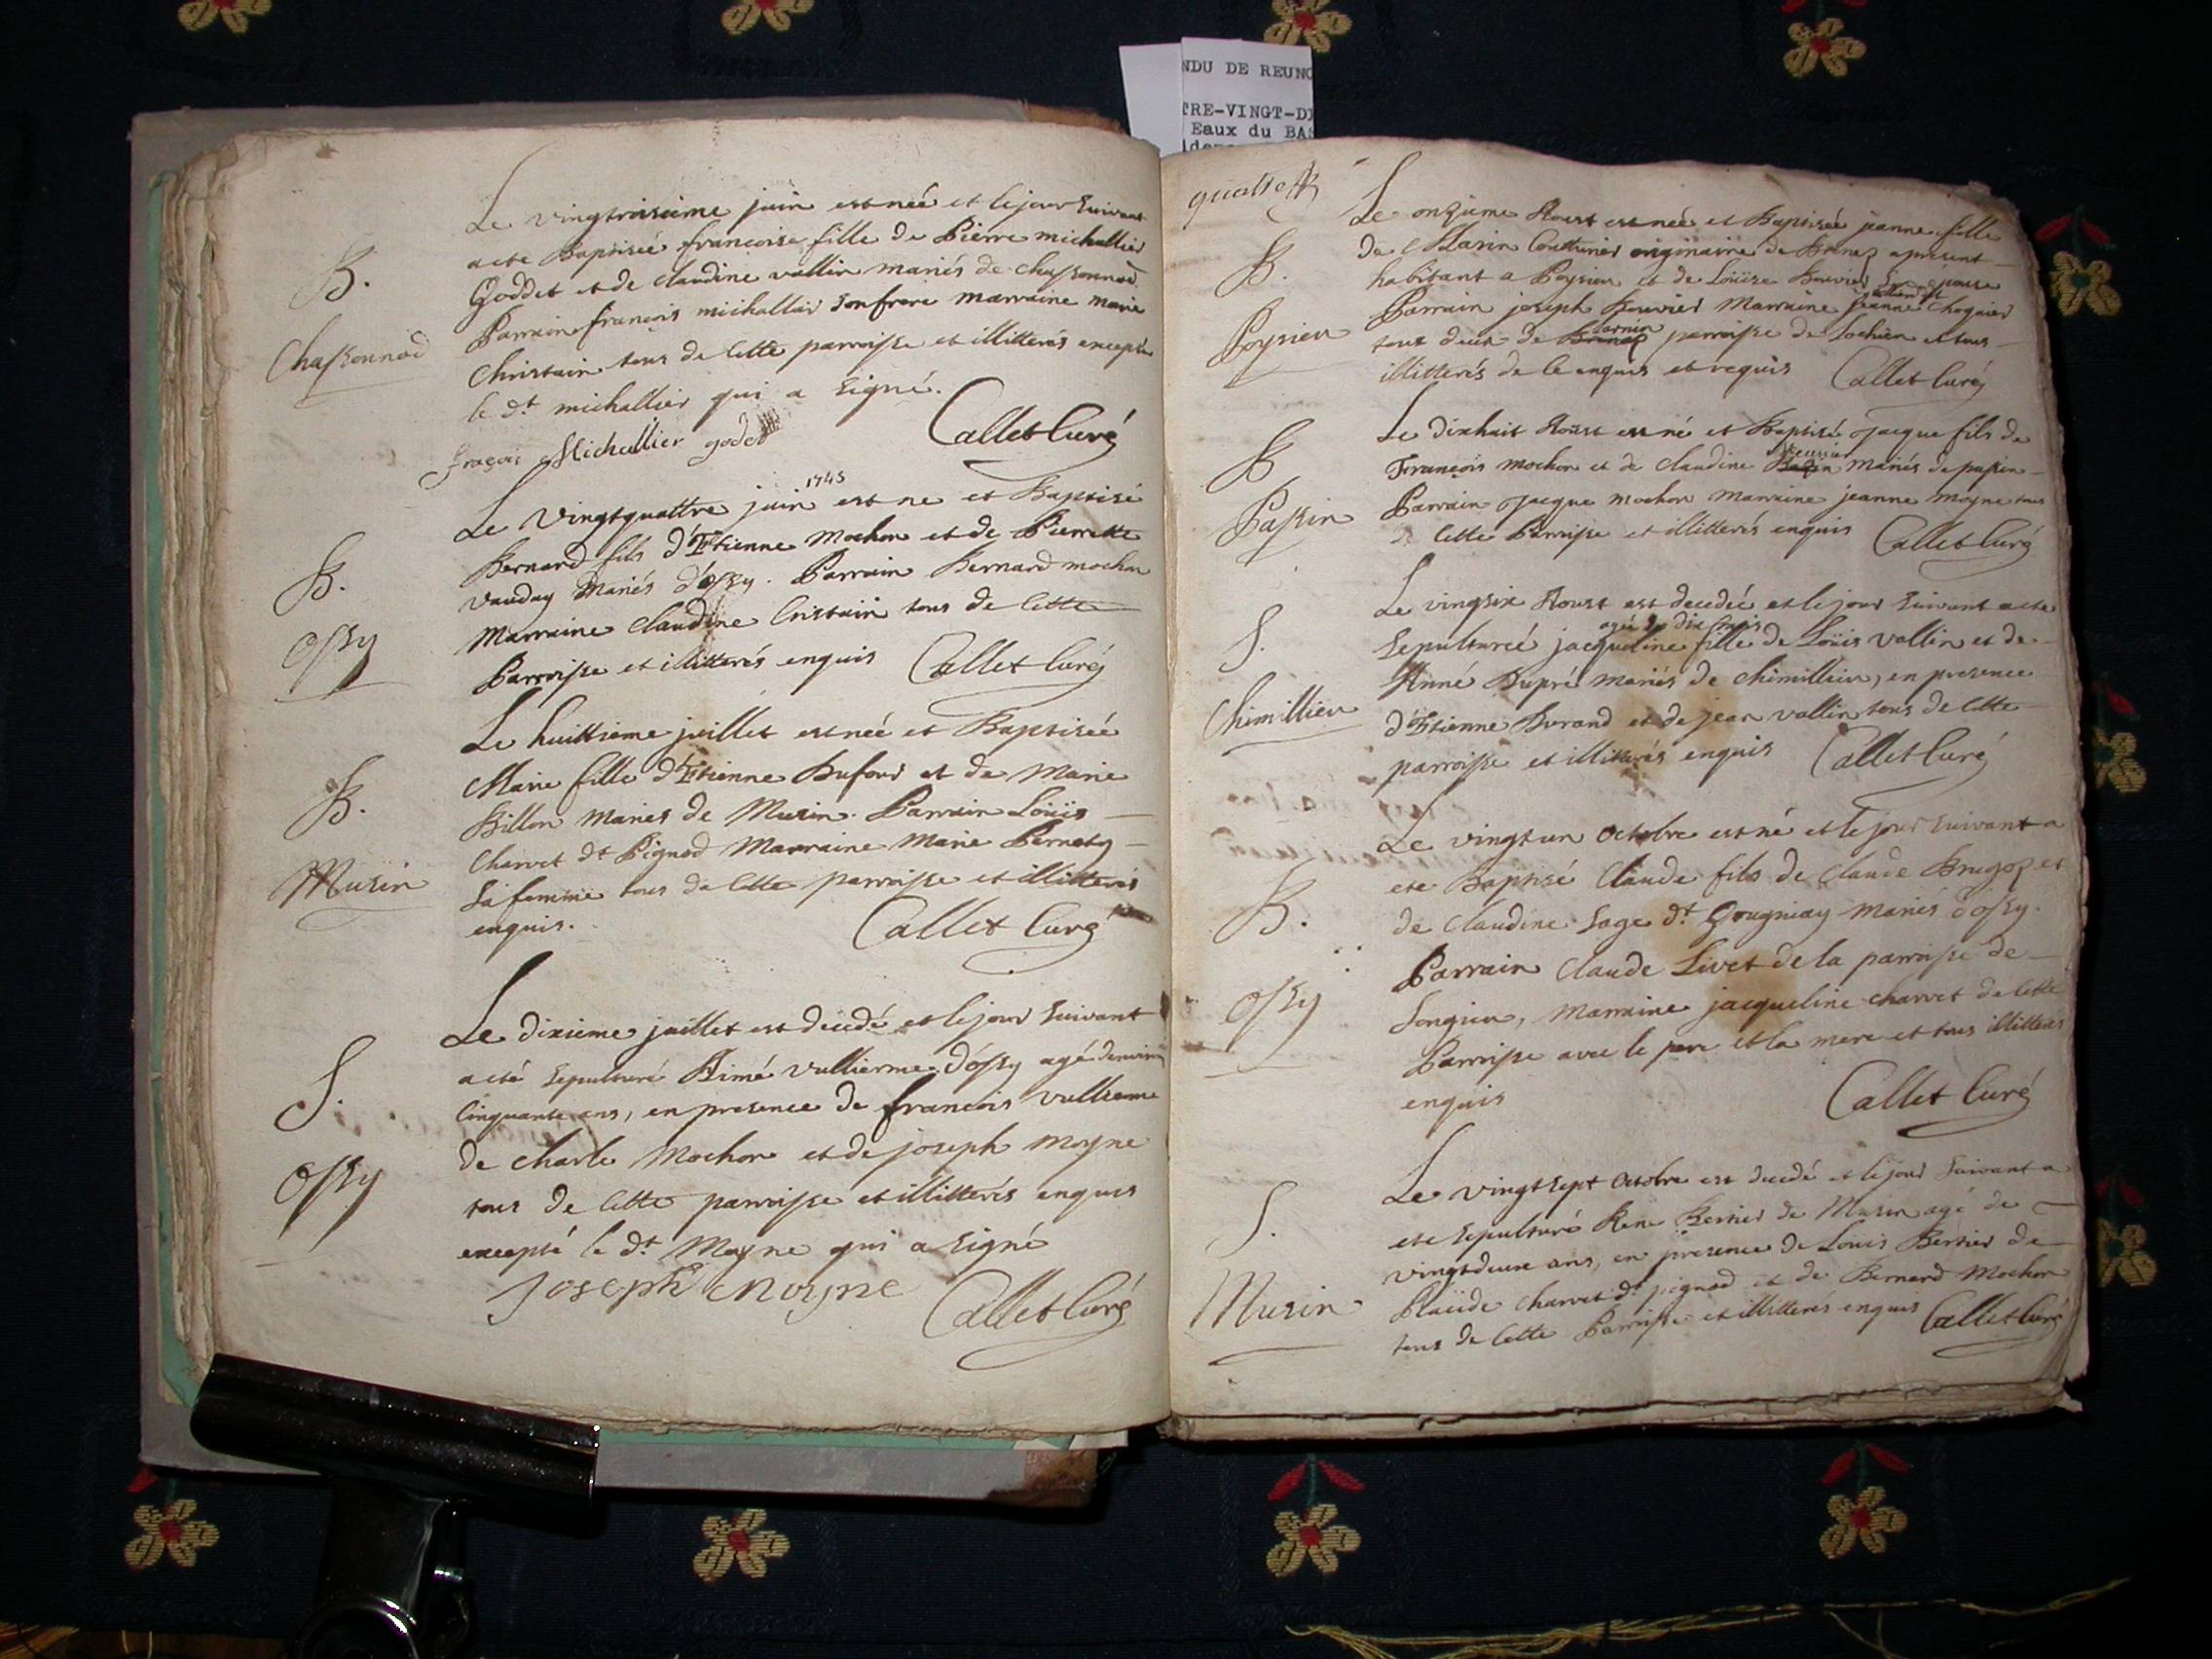 NDU DE REUNO
TRE-VINGT-DI
Eaux du BAS
B.
Chassonnod
Le vingtroisieme juin est née et le jour suivant
a ete Baptisée francoise fille de Pierre michallier
Goddet et de claudine vallin mariés de chassonnod
Parrain françois michallier son frere marraine marie
Christain tous de Cette parroisse et illitterés excepté
le dt michallier qui a signé.
françois Michallier godet
Callet Curé
B.
Ossy
1745
Le vingtquattre juin est ne et Baptisé
Bernard fils d'Etienne Mochon et de Pierrette
vauday Mariés d'ossy. Parrain Bernard mochon
Marraine Claudine Cristain tous de Cette
Parroisse et illitterés enquis
Callet Curé
B.
Musin
Le huittieme juillet est née et Baptisée
Marie fille d'Etienne Dufour et de Marie
Billon Mariés de Musin. Parrain Loüis
Charvet dt Pignod Marraine Marie Pernety
sa femme tous de Cette parroisse et illitterés
enquis.
Callet Curé
S.
Ossy
Le dixieme juillet est decedé et le jour suivant
a eté sepulturé Aimé vullierme d'ossy agé denviron
Cinquante ans, en presence de francois vullierme
de charle Mochon et de joseph moyne
tous de Cette parroisse et illitterés enquis
excepté le dt Moyne qui a signé
Joseph moyne
Callet Curé
quatre
B.
Poysieu
Le onzieme Aoust est née et Baptisée jeanne fille
de Marin Coutturier originaire de Brenaz a present
habitant a Poysieu et de Loüise Bouvier son epouse
Parrain joseph Bouvier Marraine jeanne
tous deux de parroisse de Lochieu et tous
illitterés de Ce enquis et requis
Callet Curé
B
Passin
Le dixhuit Aoust est né et Baptisé Jacque fils de
François mochon et de Claudine mariés de passin
Parrain Jacque mochon marraine jeanne moyne tous
de Cette Parroisse et illitterés enquis
Callet Curé
S.
Chimillieu
Le vingsix Aoust est decedée et le jour suivant a ete
agée de dix mois
sepulturée jacqueline fille de Loüis vallin et de
Anne Dupré mariés de chimillieu, en presence
d'Etienne Durand et de jean vallin tous de Cette
parroisse et illitterés enquis
Callet Curé
B.
Ossy
Le vingt un octobre est né et le jour suivant a
ete Baptisé Claude fils de Claude Brugoz et
de Claudine Sage dt Gougniay mariés d'ossy.
Parrain Claude Livet de la parroisse de
Songieu, Marraine jacqueline charvet de Cette
Parroisse avec le pere et la mere et tous illitterés
enquis
Callet Curé
S.
Musin
Le vingt sept octobre est decedé et le jour suivant a
ete sepulturé Rene Bertier de Musin agé de
vingtdeux ans, en presence de Louis Bertier de
Claude charvet dt pignod et de Bernard Mochon
tous de Cette Parroisse et illitterés enquis
Callet Curé